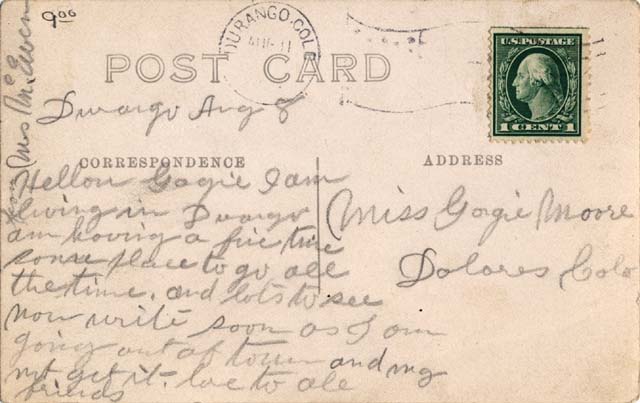 9 00
from Mrs McEwen
DURANGO, COLO.
AUG 11
U.S. POSTAGE
1 CENT 1
POST CARD
Durango Aug 8
CORRESPONDENCE
ADDRESS
Hellow Gogie I am
living in Durango
am having a fine time
some place to go all
the time. and lots to see
now write soon as I am
going out of town and my
not get it. love to all
friends
Miss Gorgie Moore
Dolores Colo